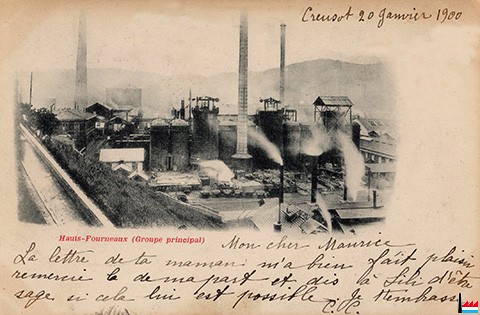 Creusot 20 Janvier 1900
Hauts-Fourneaux (Groupe principal)
Mon cher Maurice
La lettre de ta maman m'a bien fait plaisir
remercie la de ma part et dis à Lili d'être
sage si cela lui est possible. Je t'embrasse
C.C.